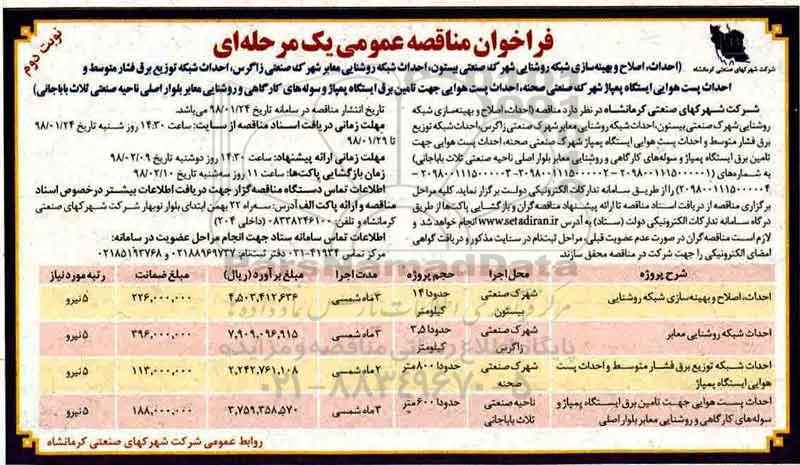 نوبت دوم
شرکت شهرکهای صنعتی کرمانشاه
فراخوان مناقصه عمومی یک مرحله‌ای
(احداث، اصلاح و بهینه‌سازی شبکه روشنایی شهرک صنعتی بیستون، احداث شبکه روشنایی معابر شهرک صنعتی زاگرس، احداث شبکه توزیع برق فشار متوسط و
احداث پست هوایی ایستگاه پمپاژ شهرک صنعتی صحنه، احداث پست هوایی جهت تامین برق ایستگاه پمپاژ و سوله‌های کارگاهی و روشنایی معابر بلوار اصلی ناحیه صنعتی ثلاث باباجانی)
شرکت شهرکهای صنعتی کرمانشاه در نظر دارد مناقصه (احداث، اصلاح و بهینه‌سازی شبکه
روشنایی شهرک صنعتی بیستون، احداث شبکه روشنایی معابر شهرک صنعتی زاگرس، احداث شبکه توزیع
برق فشار متوسط و احداث پست هوایی ایستگاه پمپاژ شهرک صنعتی صحنه، احداث پست هوایی جهت
تامین برق ایستگاه پمپاژ و سوله‌های کارگاهی و روشنایی معابر بلوار اصلی ناحیه صنعتی ثلاث باباجانی)
به شماره‌های (۲۰۹۸۰۰۱۱۱۵۰۰۰۰۰۱ - ۲۰۹۸۰۰۱۱۱۵۰۰۰۰۰۲ - ۲۰۹۸۰۰۱۱۱۵۰۰۰۰۰۳ -
۲۰۹۸۰۰۱۱۱۵۰۰۰۰۰۴) را از طریق سامانه تدارکات الکترونیکی دولت برگزار نماید. کلیه مراحل
برگزاری مناقصه از دریافت اسناد مناقصه تا ارائه پیشنهاد مناقصه‌گران و بازگشایی پاکت‌ها از طریق
درگاه سامانه تدارکات الکترونیکی دولت (ستاد) به آدرس www.setadiran.ir انجام خواهد شد و
لازم است مناقصه‌گران در صورت عدم عضویت قبلی، مراحل ثبت‌نام در سایت مذکور و دریافت گواهی
امضای الکترونیکی را جهت شرکت در مناقصه محقق سازند.
تاریخ انتشار مناقصه در سامانه تاریخ ۹۸/۰۱/۲۴ می‌باشد.
مهلت زمانی دریافت اسناد مناقصه از سایت: ساعت ۱۴:۳۰ روز شنبه تاریخ ۹۸/۰۱/۲۴
تا ۹۸/۰۱/۲۹
مهلت زمانی ارائه پیشنهاد: ساعت ۱۴:۳۰ روز دوشنبه تاریخ ۹۸/۰۲/۰۹
زمان بازگشایی پاکت‌ها: ساعت ۱۱ روز سه‌شنبه تاریخ ۹۸/۰۲/۱۰
اطلاعات تماس دستگاه مناقصه‌گزار جهت دریافت اطلاعات بیشتر در خصوص اسناد
مناقصه و ارائه پاکت الف: آدرس: سه‌راه ۲۲ بهمن ابتدای بلوار نوبهار شرکت شهرکهای صنعتی
کرمانشاه و تلفن: ۰۸۳۳۸۲۴۶۱۰۰ (داخلی ۲۰۴)
اطلاعات تماس سامانه ستاد جهت انجام مراحل عضویت در سامانه:
مرکز تماس ۴۱۹۳۴-۰۲۱ دفتر ثبت‌نام: ۰۲۱۸۸۹۶۹۷۳۷ و ۰۲۱۸۵۱۹۳۷۶۸
شرح پروژه محل اجرا حجم پروژه مدت اجرا مبلغ برآورد (ریال) مبلغ ضمانت رتبه مورد نیاز
احداث، اصلاح و بهینه‌سازی شبکه روشنایی شهرک صنعتی بیستون حدودا ۱۴ کیلومتر ۳ماه شمسی ۴,۵۰۳,۴۱۲,۶۳۶ ۲۲۶,۰۰۰,۰۰۰ ۵ نیرو
احداث شبکه روشنایی معابر شهرک صنعتی زاگرس حدودا ۳,۵ کیلومتر ۳ماه شمسی ۷,۹۰۹,۰۹۶,۹۱۵ ۳۹۶,۰۰۰,۰۰۰ ۵ نیرو
احداث شبکه توزیع برق فشار متوسط و احداث پست هوایی ایستگاه پمپاژ شهرک صنعتی صحنه حدودا ۸۰۰ متر ۲ماه شمسی ۲,۲۴۲,۷۶۱,۱۰۸ ۱۱۳,۰۰۰,۰۰۰ ۵ نیرو
احداث پست هوایی جهت تامین برق ایستگاه پمپاژ و سوله‌های کارگاهی و روشنایی معابر بلوار اصلی ناحیه صنعتی ثلاث باباجانی حدودا ۶۰۰ متر ۳ماه شمسی ۳,۷۵۹,۳۵۸,۵۷۰ ۱۸۸,۰۰۰,۰۰۰ ۵ نیرو
روابط عمومی شرکت شهرکهای صنعتی کرمانشاه
پایگاه اطلاع رسانی مناقصه و مزایده
۰۲۱-۸۸۳۴۹۶۷۰-۵